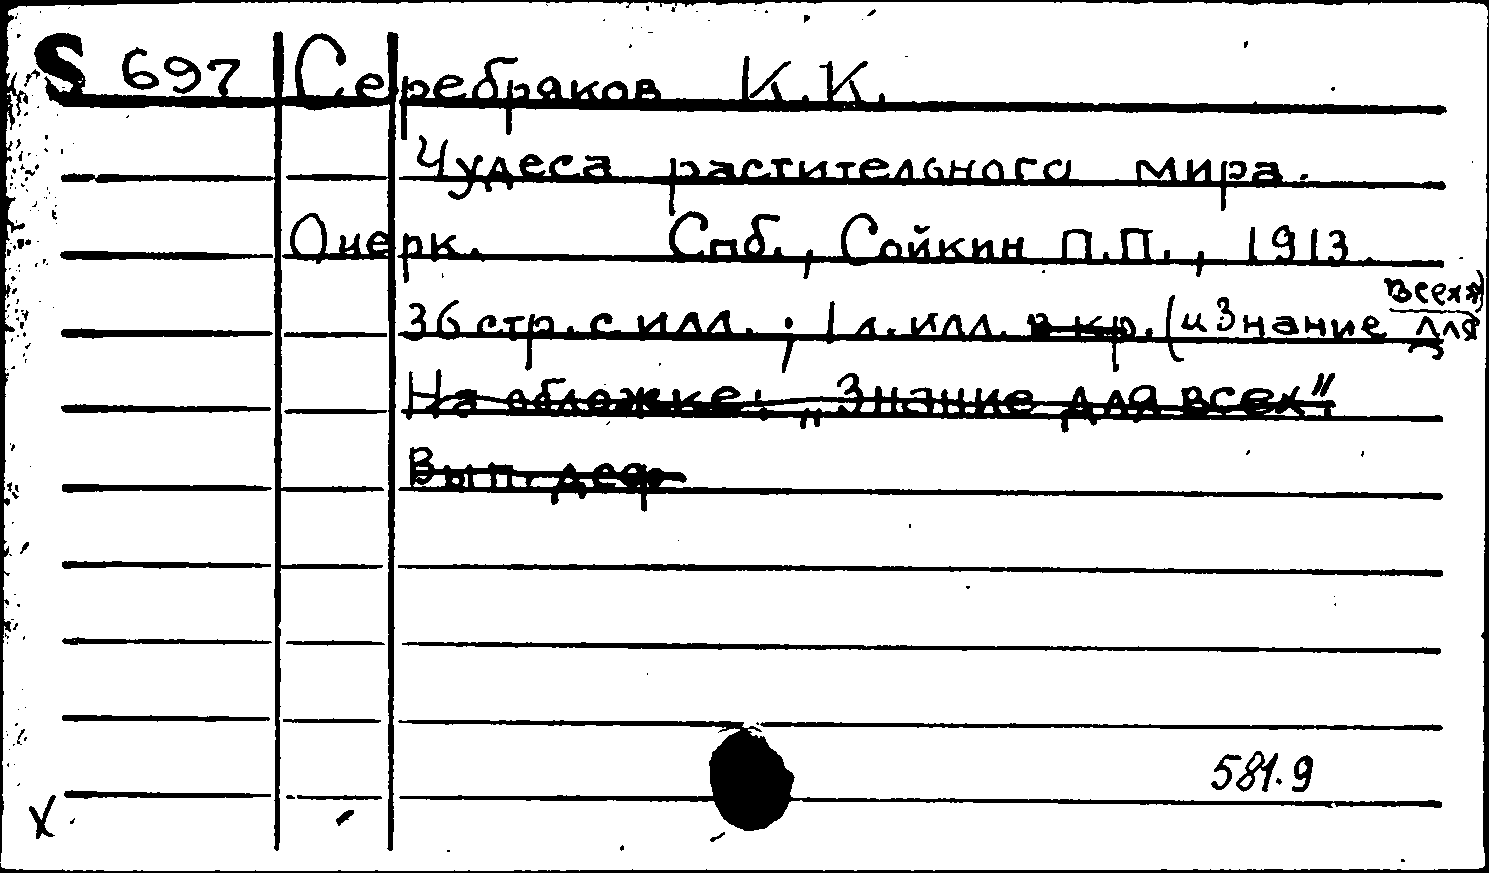 S 697 Серебряков К.К.
Чудеса растительного мира.
Очерк. Спб., Сойкин П.П., 1913.
36 стр. с илл.; 1 л. илл. в кр. („Знание для
всех")
На обложке: „Знание для всех",
Вып.
581.9
X